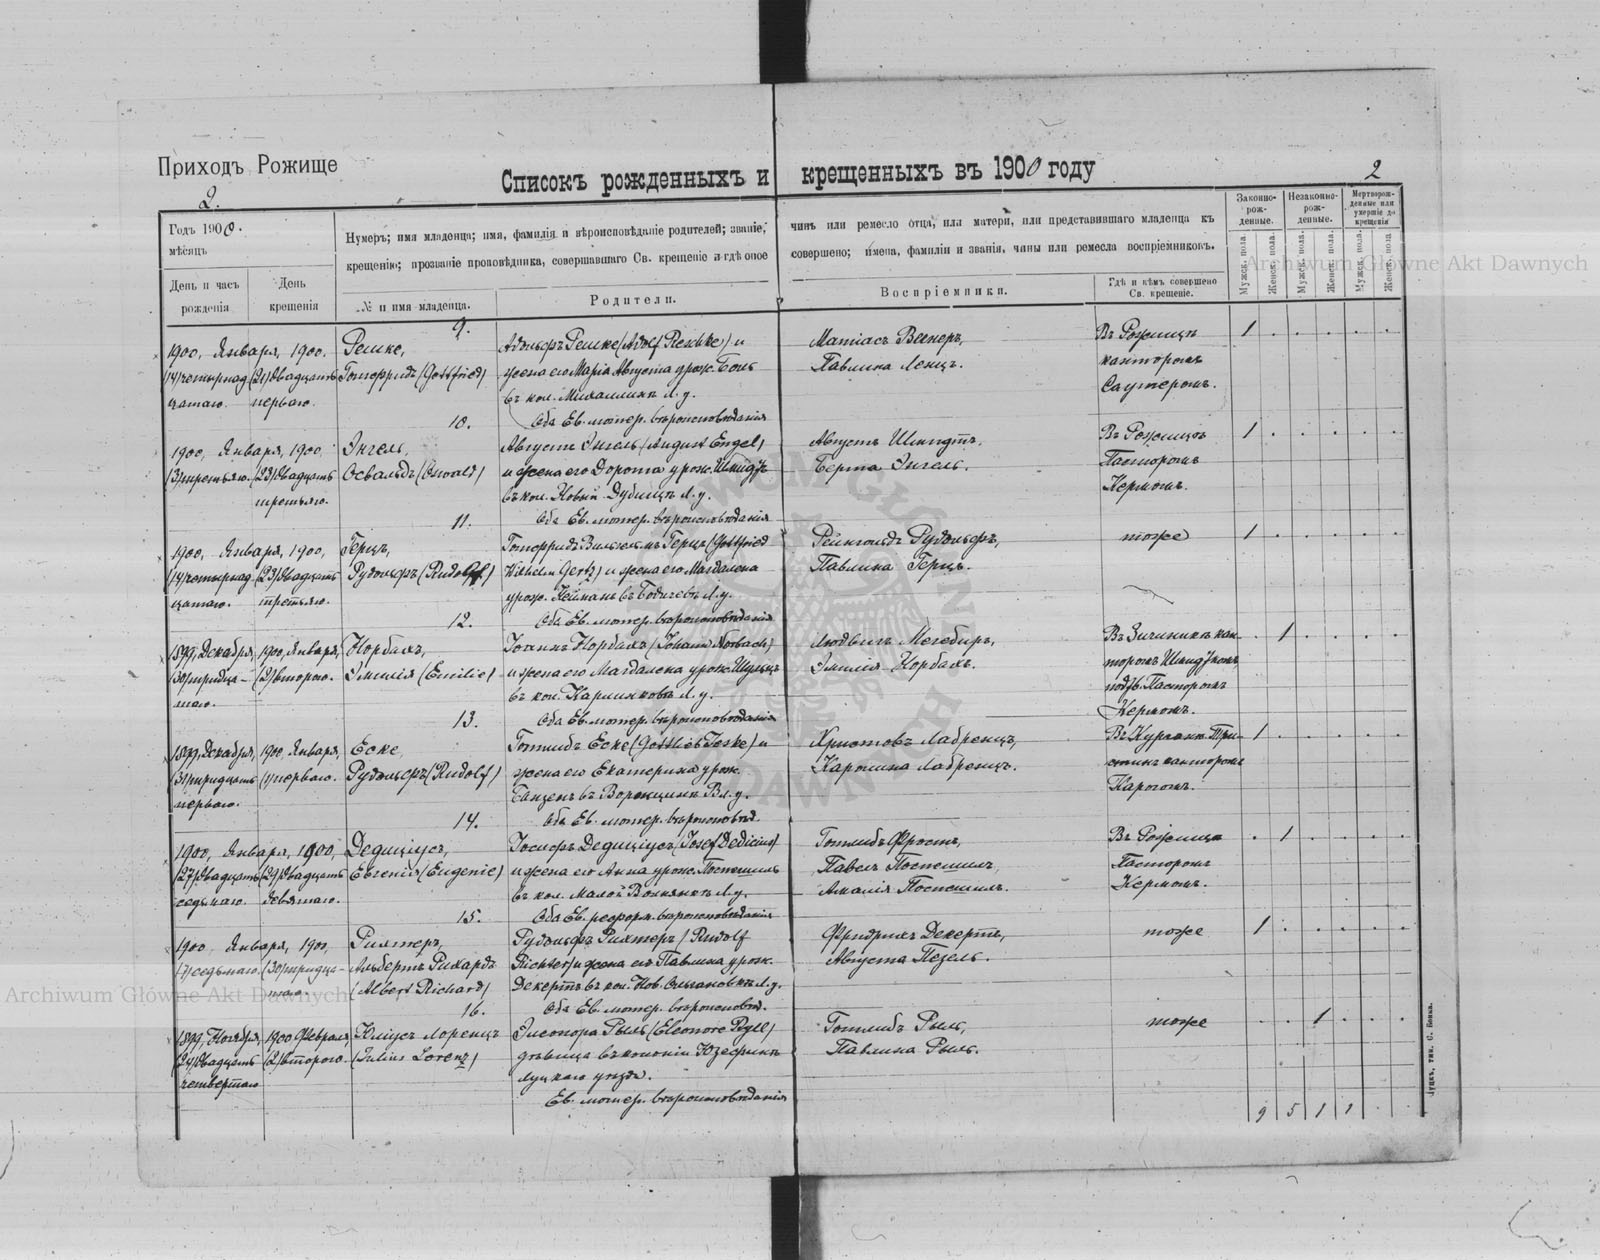 Приходъ Рожище
2.
Списокъ рожденныхъ и крещенныхъ въ 1900 году
2
Годъ 1900.
мѣсяцъ
День и часъ рожденія
День крещенія
Нумеръ; имя младенца; имя, фамилія и вѣроисповѣданіе родителей; званіе, чинъ или ремесло отца, или матери, или представившаго младенца къ
крещенію; прозваніе проповѣдника, совершавшаго Св. крещеніе и гдѣ оное совершено; имена, фамиліи и званія, чины или ремесла воспріемниковъ.
№ и имя младенца.
Родители.
Воспріемники.
Гдѣ и кѣмъ совершено Св. крещеніе.
Законно-рож-денные.
Незаконно-рож-денные.
Мертворож-денные или умершіе до крещенія
Мужск. пола.
Женск. пола.
Мужск. пола.
Женск. пола.
Мужск. пола.
Женск. пола
9.
1900, Января, 1900.
(14) четырнад-цатаго.
(21) двадцать перваго.
Решке,
Готфридъ (Gottfried)
Адольфъ Решке (Adolf Reschke) и
жена его Марія Августа урож.
въ кол. Михалинъ Л. у.
Оба Ев. лютер. вѣроисповѣданія
Матіасъ
Павлина Ленцъ.
Въ Рожищѣ
канторомъ
Саутеромъ.
1
10.
1900, Января, 1900.
(3) третьяго.
(23) двадцать третьяго.
Энгель,
Освальдъ (Oswald)
Августъ Энгель (August Engel)
и жена его Дорота урож. Шмидтъ
въ кол. Новый Л. у.
Оба Ев. лютер. вѣроисповѣданія
Августъ Шмидтъ.
Берта Энгель.
Въ Рожищѣ
Пасторомъ
Кермомъ.
1
11.
1900, Января, 1900,
(14) четырнад-цатаго.
(23) двадцать третьяго.
Герцъ,
Рудольфъ (Rudolf)
Готфридъ Вильгельмъ Герцъ (Gottfried
Wilhelm Gertz) и жена его Магдалена
урож. Нейманъ въ Л. у.
Оба Ев. лютер. вѣроисповѣданія
Рейнгольдъ Рудольфъ,
Павлина Герцъ.
тоже
1
12.
1899, Декабря, 1900, Января,
(30) тридца-таго.
(2) второго.
Норбахъ,
Эмилія (Emilie)
Іоганъ Норбахъ (Johann Norbach)
и жена его Магдалена урож. Шульцъ
въ кол. Л. у.
Оба Ев. лютер. вѣроисповѣданія
Людвигъ
Эмилія Норбахъ.
Въ кан-
торомъ
подтв. Пасторомъ
Кермомъ.
1
13.
1899, Декабря, 1900, Января,
(31) тридцать перваго.
(1) перваго.
Еске,
Рудольфъ (Rudolf)
Готлибъ Еске (Gottlieb Jeske) и
жена его Екатерина урож.
Оба Ев. лютер. вѣроисповѣд.
Христофъ Лабренцъ,
Каролина Лабренцъ.
канторомъ
1
14.
1900, Января, 1900,
(27) двадцать седьмаго.
(29) двадцать девятаго.
Дедиціусъ,
Евгенія (Eugenie)
Іосифъ Дедиціусъ (Josef Dedicius)
и жена его Анна урож. Поспешиль
въ кол. Малой Л. у.
Оба Ев. реформ. вѣроисповѣданія
Готлибъ Фростъ,
Павелъ Поспешиль,
Амалія Поспешиль.
Въ Рожищѣ
Пасторомъ
Кермомъ.
1
15.
1900 Января, 1900,
(7) седьмаго.
(30) тридца-таго.
Рихтеръ,
Альбертъ Рихардъ
(Albert Richard)
Рудольфъ Рихтеръ (Rudolf
Richter) и жена его Павлина урож.
Декертъ въ кол. Нов. Л. у.
Оба Ев. лютер. вѣроисповѣд.
Фридрихъ Декертъ,
Августа Пезель.
тоже
1
16.
1899, Ноября, 1900 Февраля,
(24) двадцать четвертаго
(2) второго.
Юліусъ Лоренцъ
(Julius Lorenz)
Элеонора Рыль (Eleonore Ryll)
дѣвица въ колоніи Юзефинъ
Луцкаго уѣзда.
Ев. лютер. вѣроисповѣданія
Готлибъ Рыль,
Павлина Рыль.
тоже
1
9 5 1 1
Луцкъ, тип. С. Бонка.
Archiwum Główne Akt Dawnych
Archiwum Główne Akt Dawnych